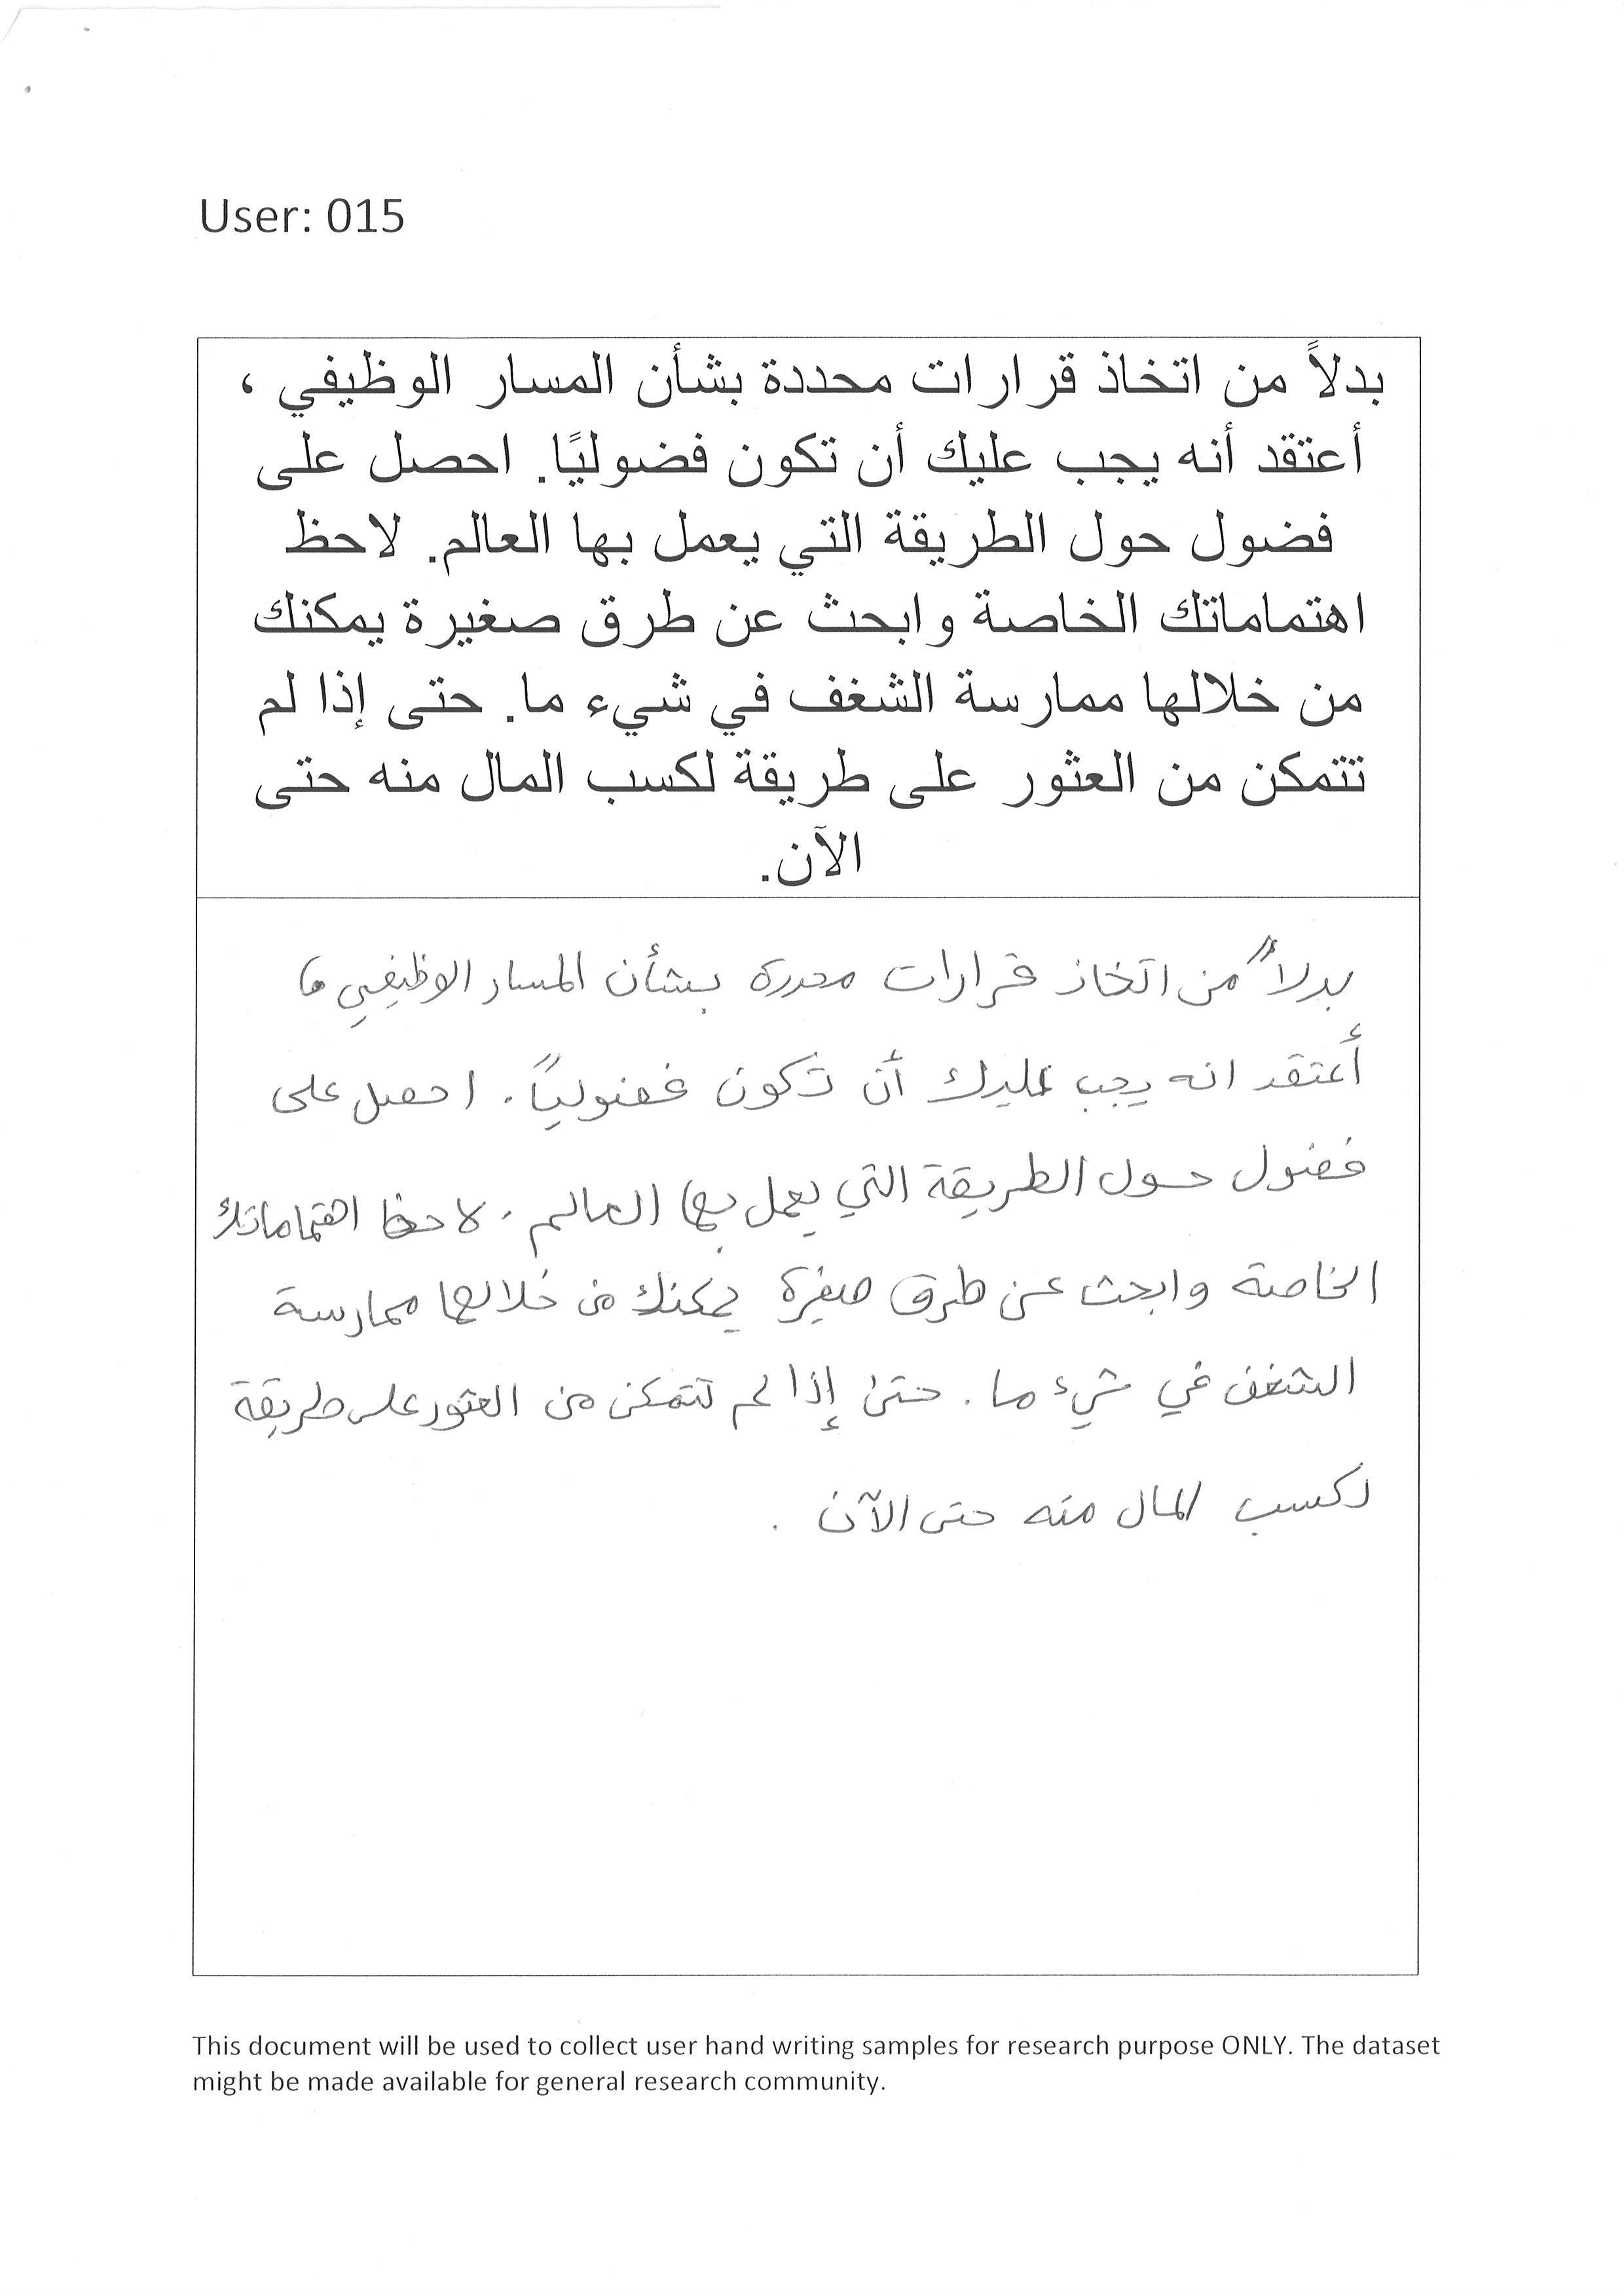 User: 015
بدلاً من اتخاذ قرارات محددة بشأن المسار الوظيفي ،
أعتقد أنه يجب عليك أن تكون فضوليًا. احصل على
فضول حول الطريقة التي يعمل بها العالم. لاحظ
اهتماماتك الخاصة وابحث عن طرق صغيرة يمكنك
من خلالها ممارسة الشغف في شيء ما. حتى إذا لم
تتمكن من العثور على طريقة لكسب المال منه حتى
الآن.
بدلاً من اتخاذ قرارات محددة بشأن المسار الوظيفي ،
أعتقد انه يجب عليك أن تكون فضولياً . احصل على
فضول حول الطريقة التي يعمل بها العالم . لاحظ اهتماماتك
الخاصة وابحث عن طرق صغيرة يمكنك من خلالها ممارسة
الشغف في شيء ما . حتى إذا لم تتمكن من العثور على طريقة
لكسب المال منه حتى الآن .
This document will be used to collect user hand writing samples for research purpose ONLY. The dataset
might be made available for general research community.